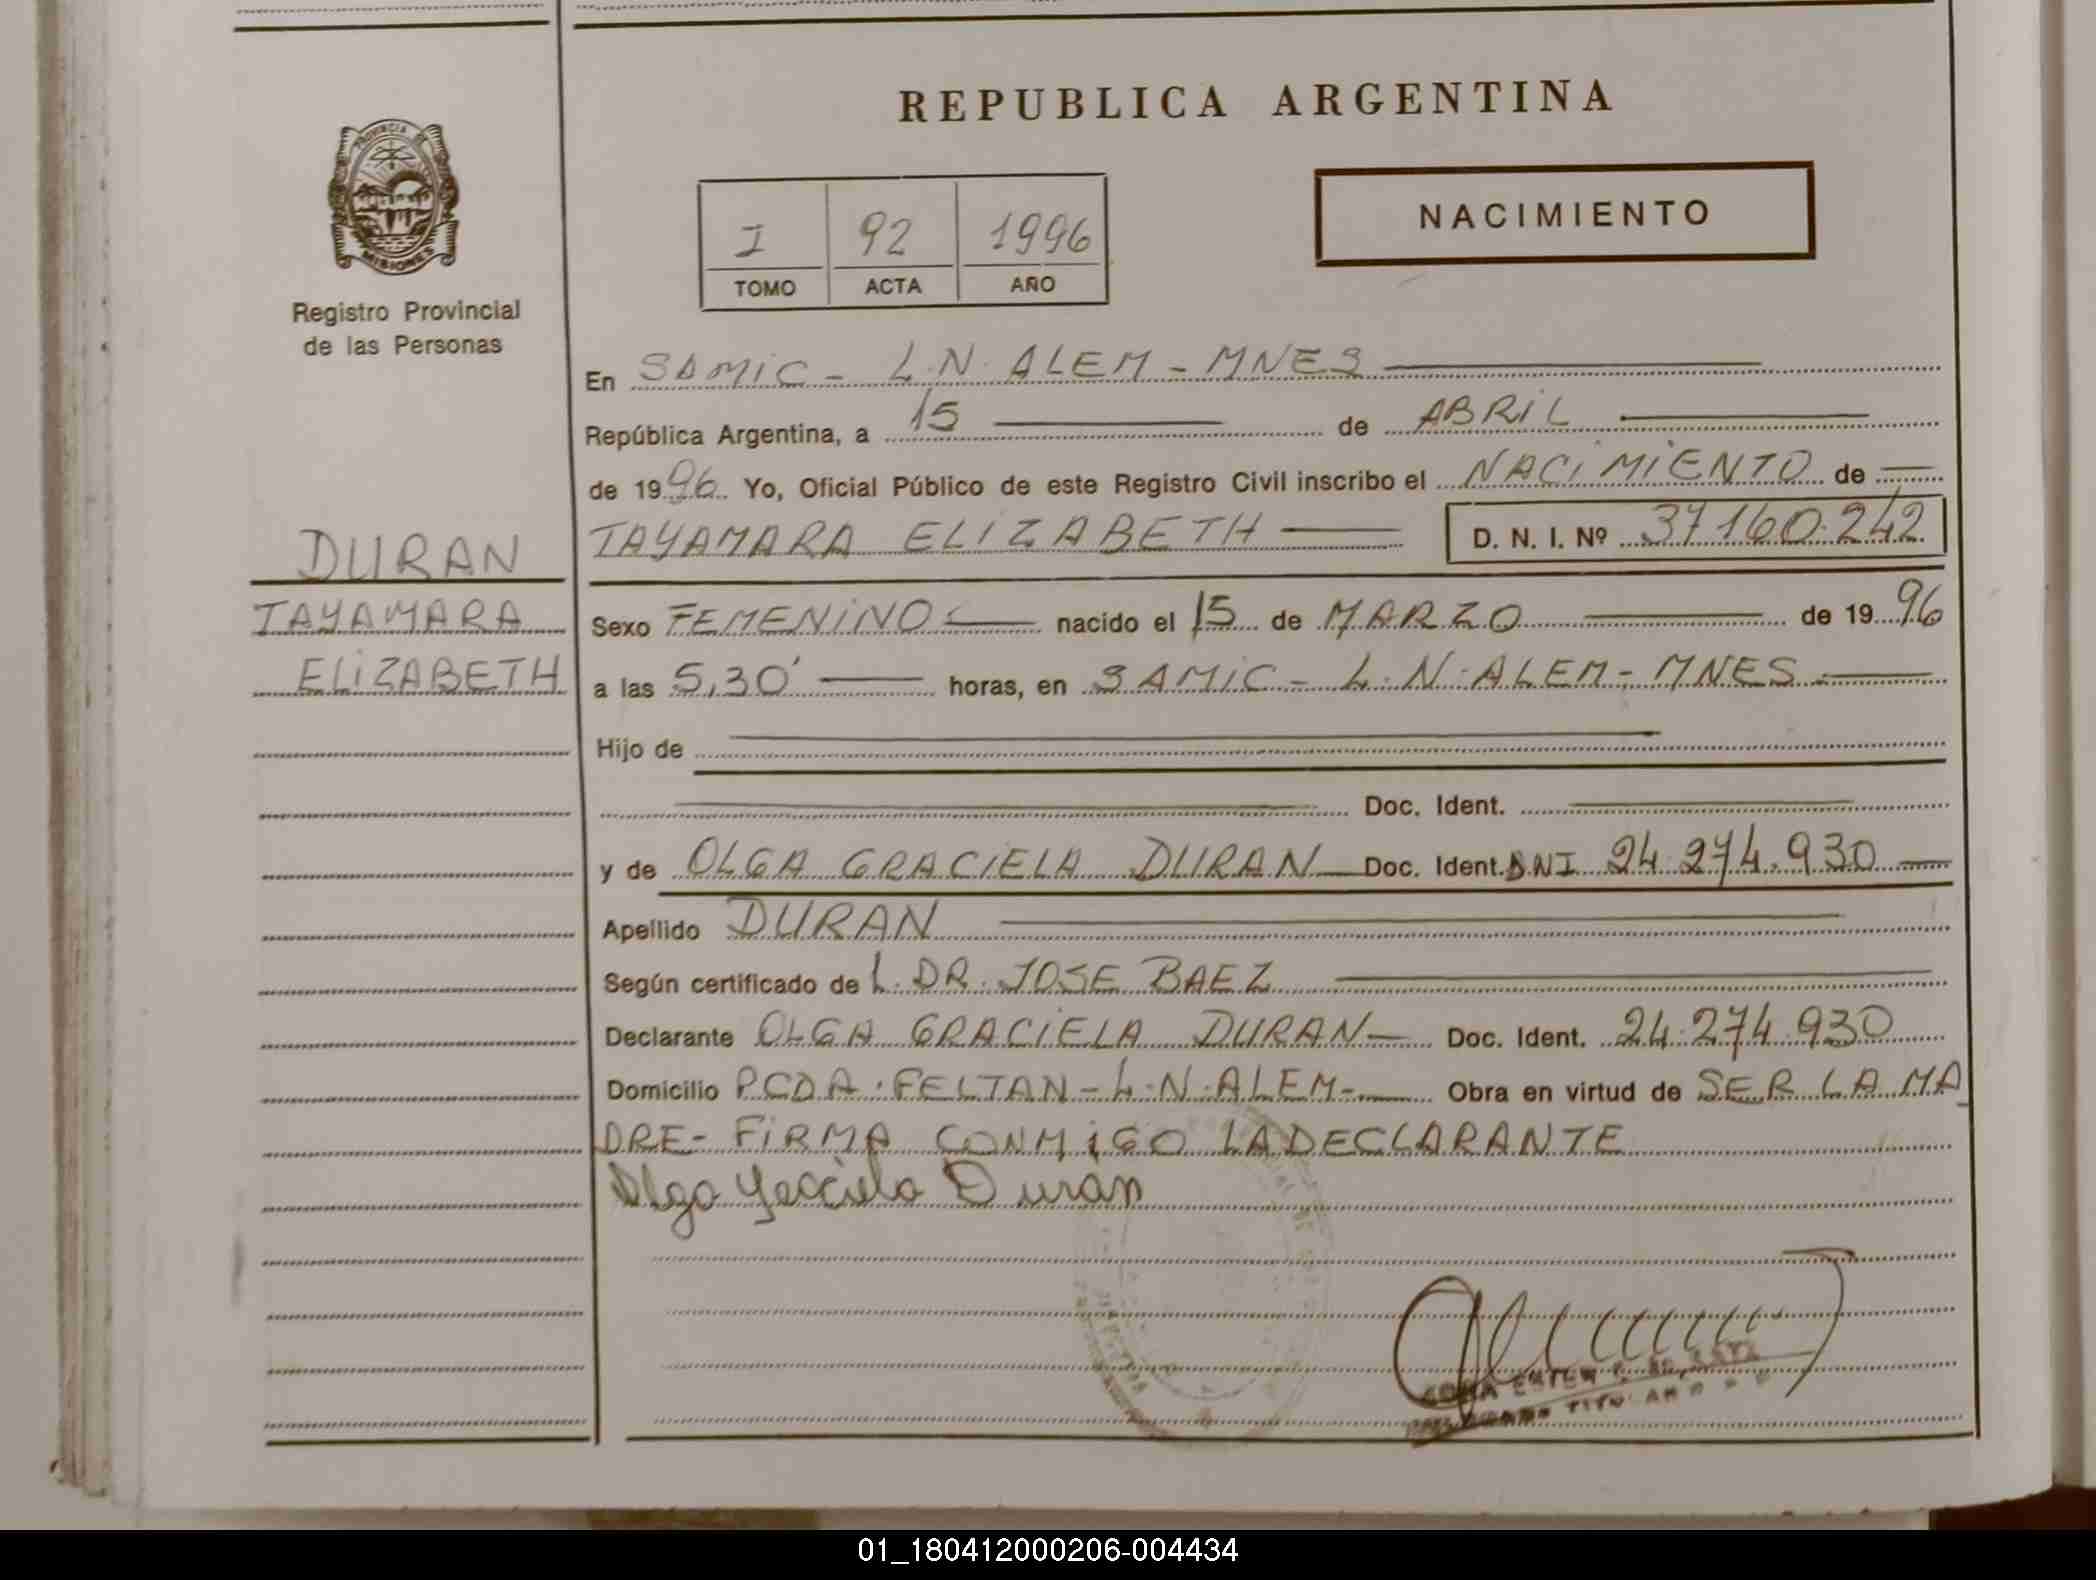 REPUBLICA ARGENTINA
PROVINCIA DE
MISIONES
Registro Provincial
de las Personas
I 92 1996
TOMO ACTA AÑO
NACIMIENTO
En SAMIC - L.N. ALEM - MNES
República Argentina, a 15 de ABRIL
de 1996. Yo, Oficial Público de este Registro Civil inscribo el NACIMIENTO de
DURAN
TAYAMARA ELIZABETH D. N. I. Nº 37160.242
TAYAMARA
Sexo FEMENINO nacido el 15 de MARZO de 1996
ELIZABETH
a las 5,30' horas, en SAMIC - L.N. ALEM - MNES
Hijo de
Doc. Ident.
y de OLGA GRACIELA DURAN Doc. Ident. DNI 24.274.930
Apellido DURAN
Según certificado de L. DR. JOSE BAEZ
Declarante OLGA GRACIELA DURAN Doc. Ident. 24.274.930
Domicilio PCDA. FELTAN - L.N. ALEM - Obra en virtud de SER LA MA
DRE - FIRMA CONMIGO LA DECLARANTE
Olga Graciela Duran
01_180412000206-004434